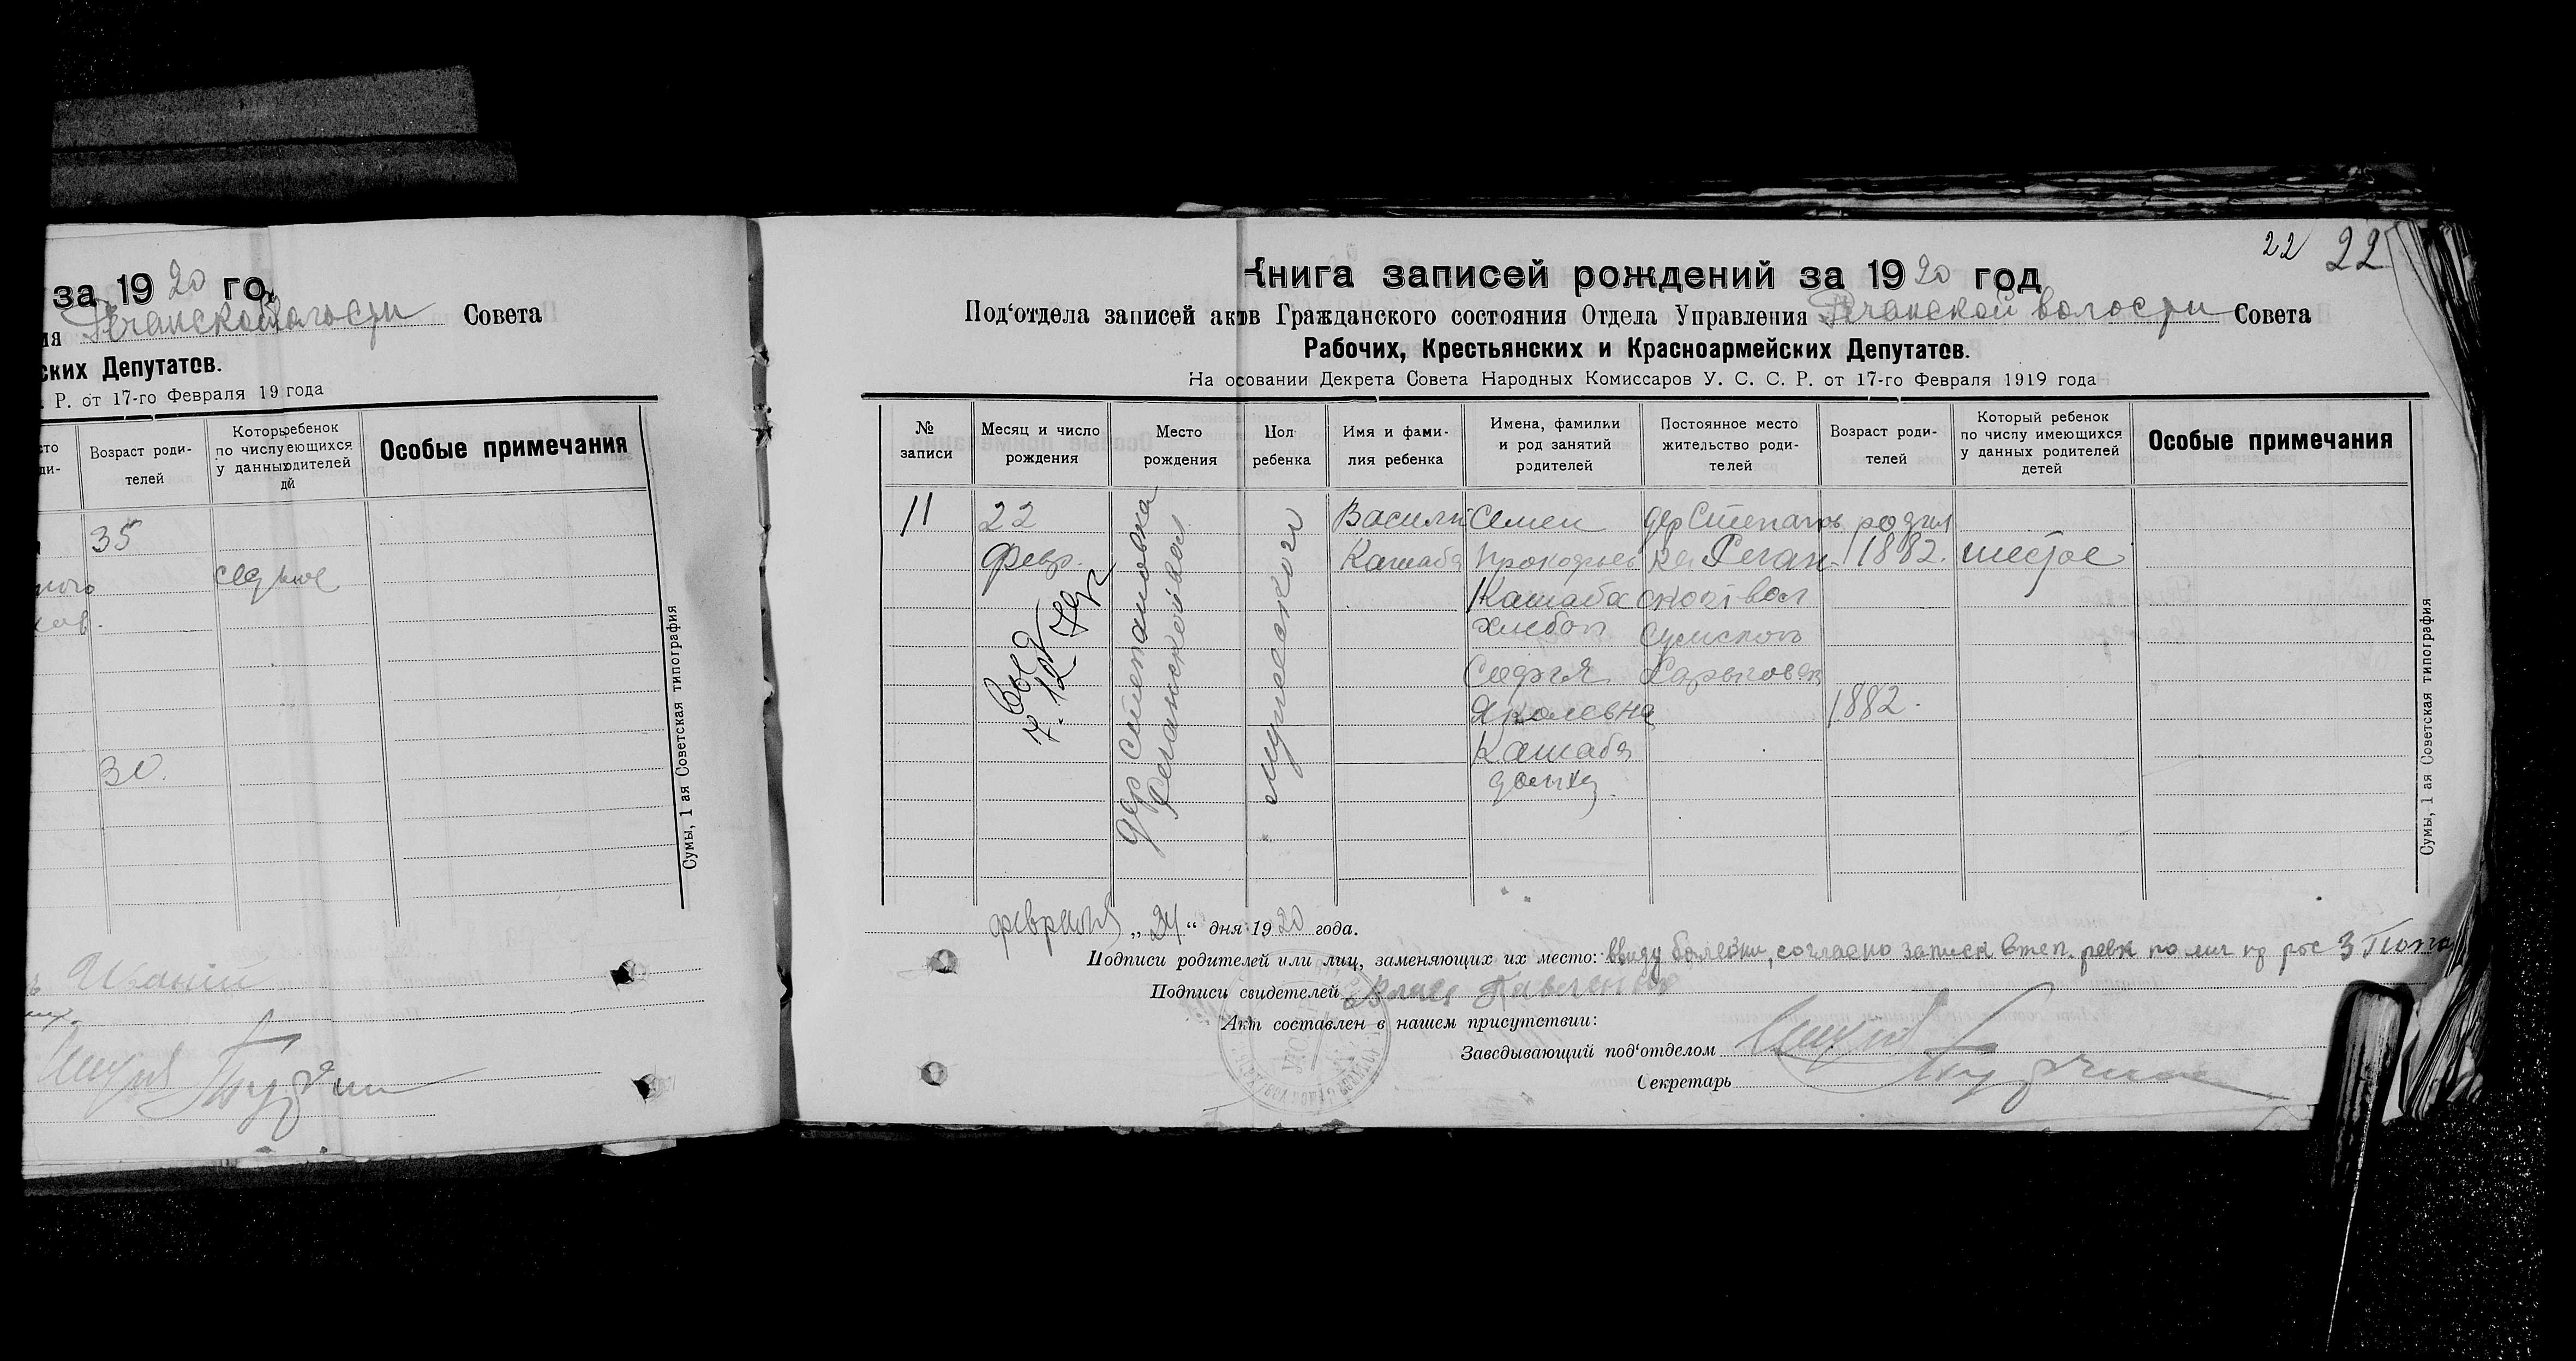 за 1920 го
Речанской волости Совета
ия
ских Депутатов.
. Р. от 17-го Февраля 19 года
Возраст роди-
телей
Которебенок
по числу еющихся
у данных одителей
Особые примечания
35
седьмое
ного
30.
Сумы, 1 ая Советская типография
22 22
Книга записей рождений за 1920 год
Под‘отдела записей актов Гражданского состояния Отдела Управления Речанской волости Совета
Рабочих, Крестьянских и Красноармейских Депутатов.
На осовании Декрета Совета Народных Комиссаров У. С. С. Р. от 17-го Февраля 1919 года
№
записи
Месяц и число
рождения
Место
рождения
Пол
ребенка
Имя и фами-
лия ребенка
Имена, фамилки
и род занятий
родителей
Постоянное место
жительство роди-
телей
Возраст роди-
телей
Который ребенок
по числу имеющихся
у данных родителей
детей
Особые примечания
11
22
февр.
Выд
7.12 79г
дер Степановка
Речанской вол
мужеского
Василий
Кашаба
Семен
Прокофьев
Кашаба
хлебоп
София
Яковлевна
Кашаба
домих
дер Степанов
ка Речан
ской вол
Сумского
Харьковск
родил
1882.
1882.
шестое
Сумы, 1 ая Советская типография
февраля „24“ дня 1920 года.
Подписи родителей или лиц, заменяющих их место: ввиду болезни, согласно
Подписи свидетелей
Акт составлен в нашем присутствии:
Заведывающий под‘отделом
Секретарь